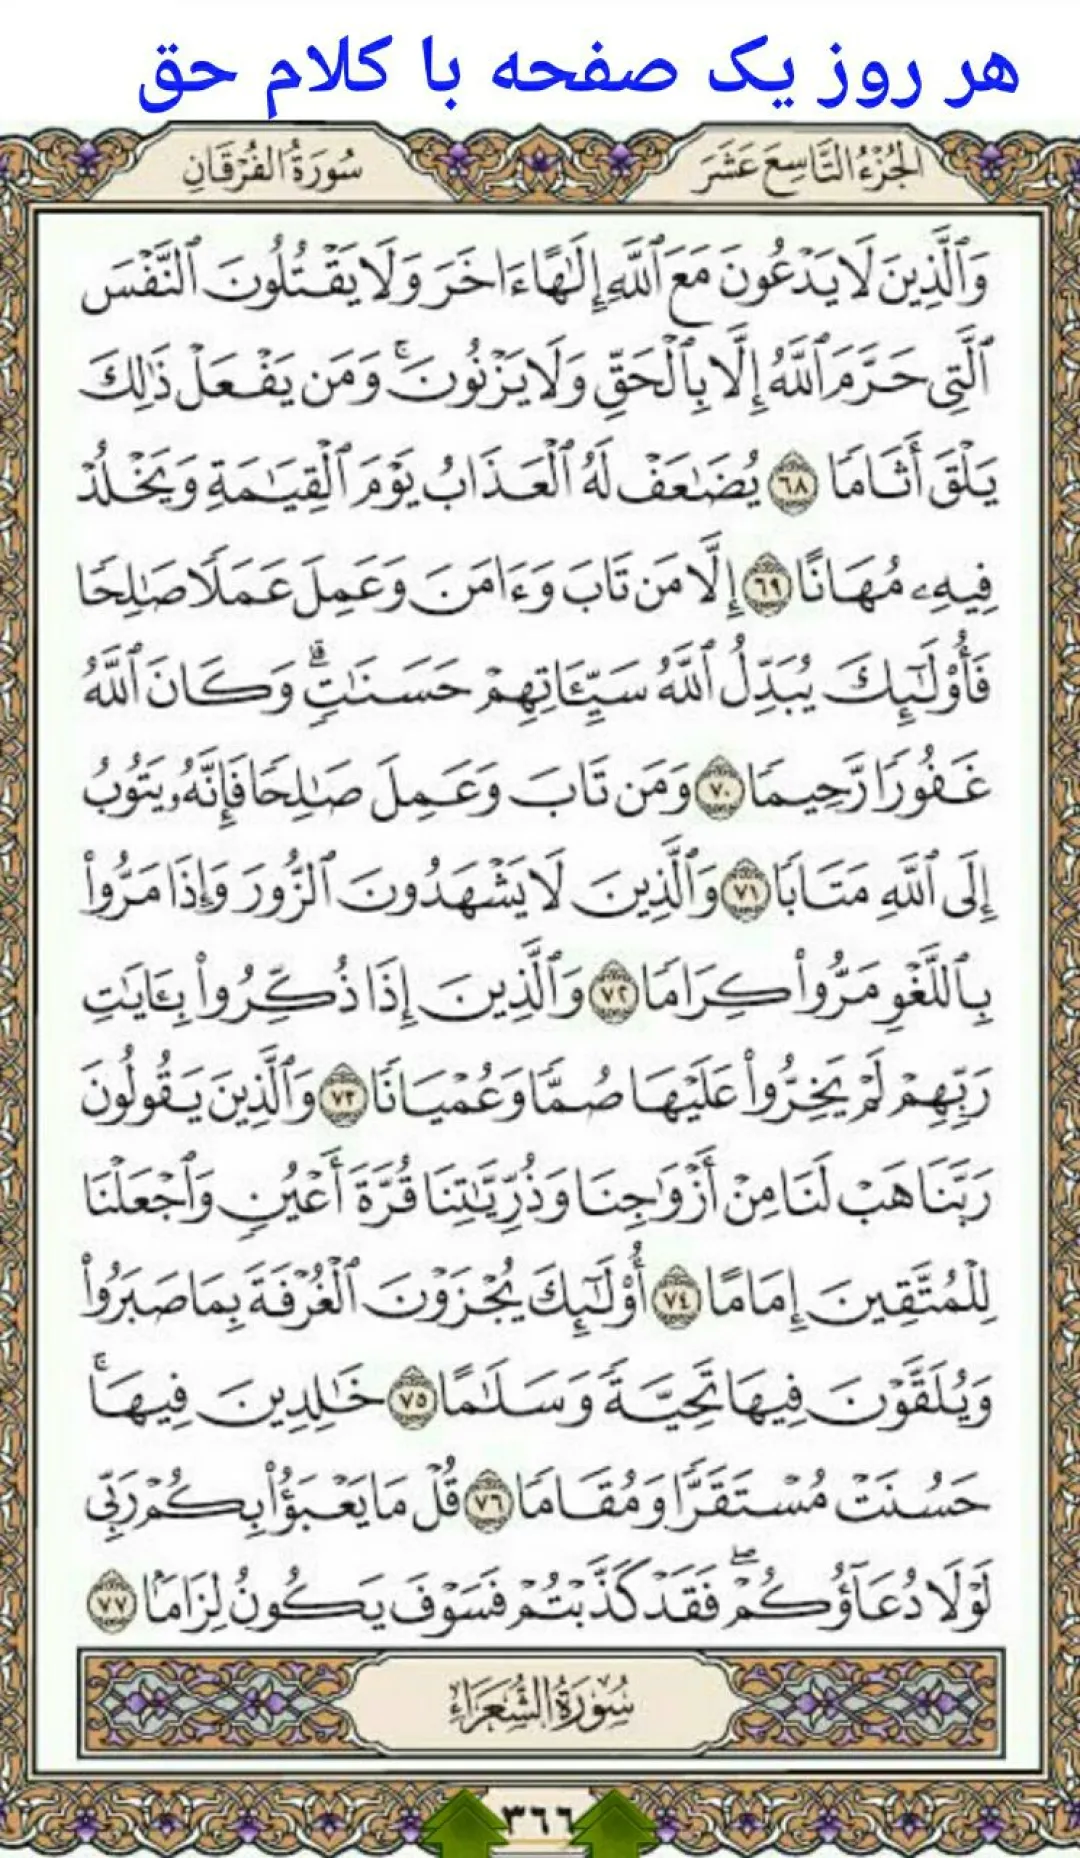 هر روز یک صفحه با کلام حق
الجُزْءُ التَّاسِعَ عَشَرَ
سُورَةُ الفُرْقَانِ
وَٱلَّذِينَ لَا يَدْعُونَ مَعَ ٱللَّهِ إِلَٰهًا ءَاخَرَ وَلَا يَقْتُلُونَ ٱلنَّفْسَ
ٱلَّتِي حَرَّمَ ٱللَّهُ إِلَّا بِٱلْحَقِّ وَلَا يَزْنُونَۚ وَمَن يَفْعَلْ ذَٰلِكَ
يَلْقَ أَثَامًا ٦٨ يُضَٰعَفْ لَهُ ٱلْعَذَابُ يَوْمَ ٱلْقِيَٰمَةِ وَيَخْلُدْ
فِيهِۦ مُهَانًا ٦٩ إِلَّا مَن تَابَ وَءَامَنَ وَعَمِلَ عَمَلًا صَٰلِحًا
فَأُوْلَٰٓئِكَ يُبَدِّلُ ٱللَّهُ سَيِّـَٔاتِهِمْ حَسَنَٰتٍۗ وَكَانَ ٱللَّهُ
غَفُورًا رَّحِيمًا ٧٠ وَمَن تَابَ وَعَمِلَ صَٰلِحًا فَإِنَّهُۥ يَتُوبُ
إِلَى ٱللَّهِ مَتَابًا ٧١ وَٱلَّذِينَ لَا يَشْهَدُونَ ٱلزُّورَ وَإِذَا مَرُّواْ
بِٱللَّغْوِ مَرُّواْ كِرَامًا ٧٢ وَٱلَّذِينَ إِذَا ذُكِّرُواْ بِـَٔايَٰتِ
رَبِّهِمْ لَمْ يَخِرُّواْ عَلَيْهَا صُمًّا وَعُمْيَانًا ٧٣ وَٱلَّذِينَ يَقُولُونَ
رَبَّنَا هَبْ لَنَا مِنْ أَزْوَٰجِنَا وَذُرِّيَّٰتِنَا قُرَّةَ أَعْيُنٍ وَٱجْعَلْنَا
لِلْمُتَّقِينَ إِمَامًا ٧٤ أُوْلَٰٓئِكَ يُجْزَوْنَ ٱلْغُرْفَةَ بِمَا صَبَرُواْ
وَيُلَقَّوْنَ فِيهَا تَحِيَّةً وَسَلَٰمًا ٧٥ خَٰلِدِينَ فِيهَاۚ
حَسُنَتْ مُسْتَقَرًّا وَمُقَامًا ٧٦ قُلْ مَا يَعْبَؤُاْ بِكُمْ رَبِّي
لَوْلَا دُعَآؤُكُمْۖ فَقَدْ كَذَّبْتُمْ فَسَوْفَ يَكُونُ لِزَامًا ٧٧
سُورَةُ الشُّعَرَاءِ
٣٦٦